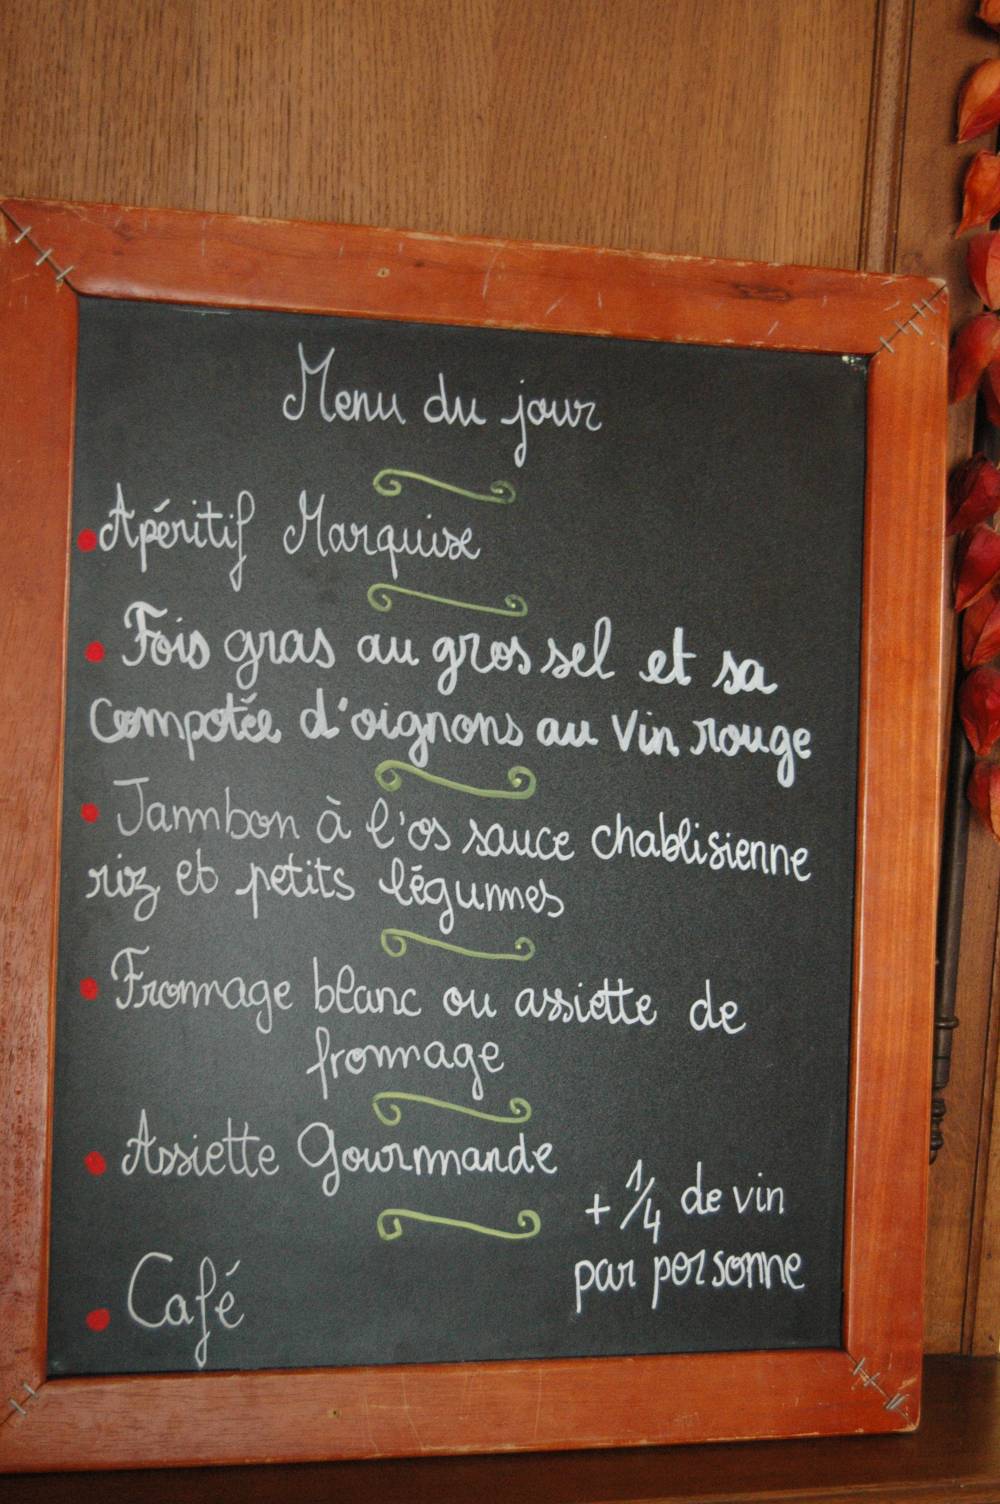 Menu du jour
• Apéritif Marquise
• Fois gras au gros sel et sa
compotée d'oignons au Vin rouge
• Jambon à l'os sauce chablisienne
riz et petits légumes
• Fromage blanc ou assiette de
fromage
• Assiette Gourmande
+ 1/4 de vin
par personne
• Café